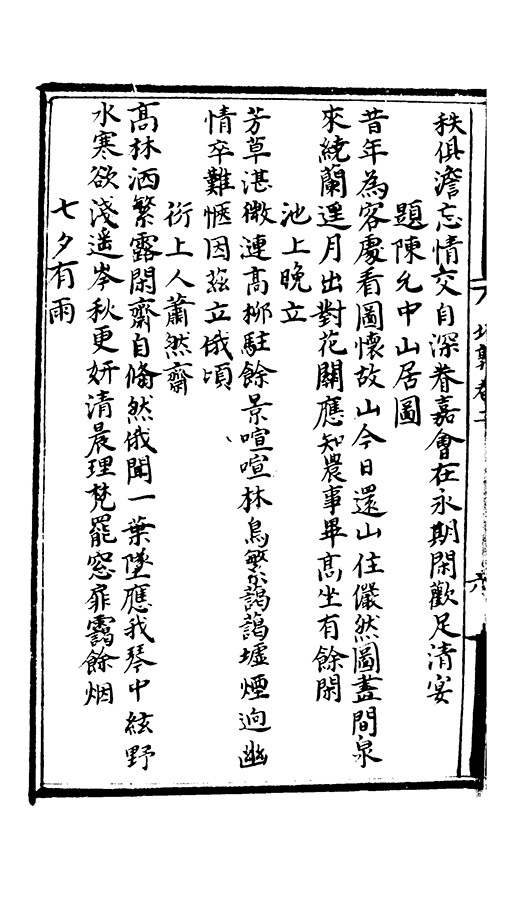 秩俱澹忘情交自深眷嘉會在永期閑歡足清宴
題陳允中山居圖
昔年為客處看圖懷故山今日還山住儼然圖畫間泉
來繞蘭遥月出對花關應知農事畢高坐有餘閑
池上晚立
芳草湛微漣高柳駐餘景喧喧林鳥繁藹藹墟煙逈幽
情卒難愜因茲立俄頃
衍上人蕭然齋
高林洒繁露閑齋自翛然俄聞一葉墜應我琴中絃野
水寒欲淺遥岑秋更妍清晨理梵罷窓扉靄餘烟
七夕有雨
卷二
六